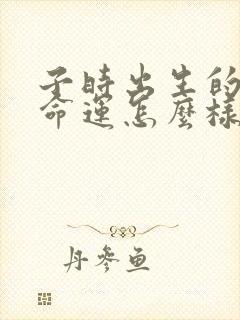 子時出生的
命運怎麼樣
丹參魚